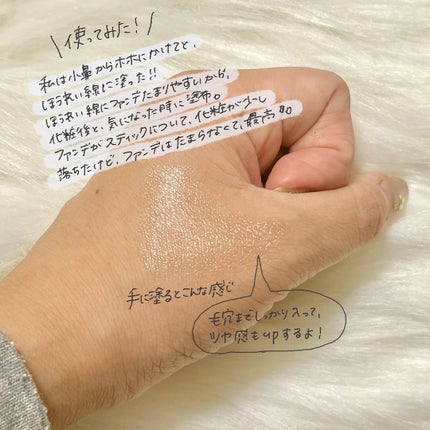 使ってみた！
私は小鼻からホホにかけてと、
ほうれい線に塗った!!
ほうれい線にファンデたまりやすいから、
化粧後と、気になった時に塗布。
ファンデがスティックについて、化粧が少し
落ちたけど、ファンデはたまらなくて、最高
手に塗るとこんな感じ
毛穴までしっかり入って、
ツヤ感もupするよ！